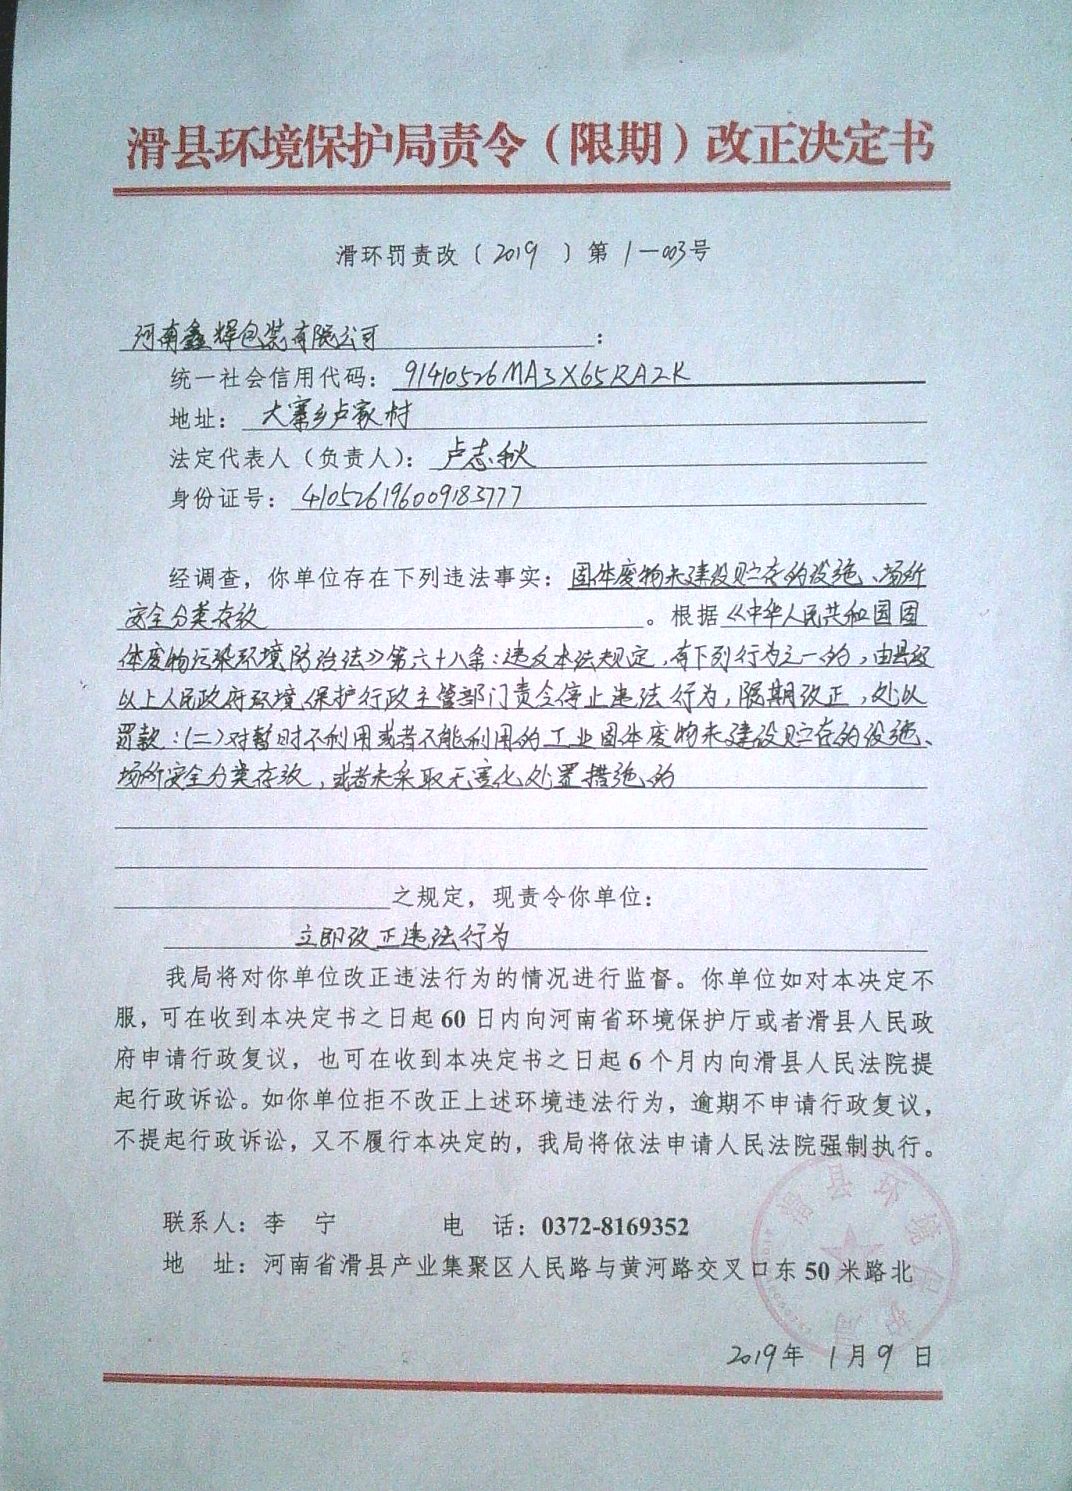 滑县环境保护局责令（限期）改正决定书
滑环罚责改〔2019 〕第1—003号
河南鑫辉包装有限公司：
统一社会信用代码：91410526MA3X65RA2K
地址：大寨乡卢家村
法定代表人（负责人）：卢志秋
身份证号：410526196009183777
经调查，你单位存在下列违法事实：固体废物未建设贮存的设施、场所
安全分类存放。根据《中华人民共和国固
体废物污染环境防治法》第六十八条：违反本法规定，有下列行为之一的，由县级
以上人民政府环境保护行政主管部门责令停止违法行为，限期改正，处以
罚款：（二）对暂时不利用或者不能利用的工业固体废物未建设贮存的设施、
场所安全分类存放，或者未采取无害化处置措施的
之规定，现责令你单位：
立即改正违法行为
我局将对你单位改正违法行为的情况进行监督。你单位如对本决定不
服，可在收到本决定书之日起60日内向河南省环境保护厅或者滑县人民政
府申请行政复议，也可在收到本决定书之日起6个月内向滑县人民法院提
起行政诉讼。如你单位拒不改正上述环境违法行为，逾期不申请行政复议，
不提起行政诉讼，又不履行本决定的，我局将依法申请人民法院强制执行。
联系人：李 宁 电 话：0372-8169352
地 址：河南省滑县产业集聚区人民路与黄河路交叉口东50米路北
滑县环境保护局
2019年1月9日